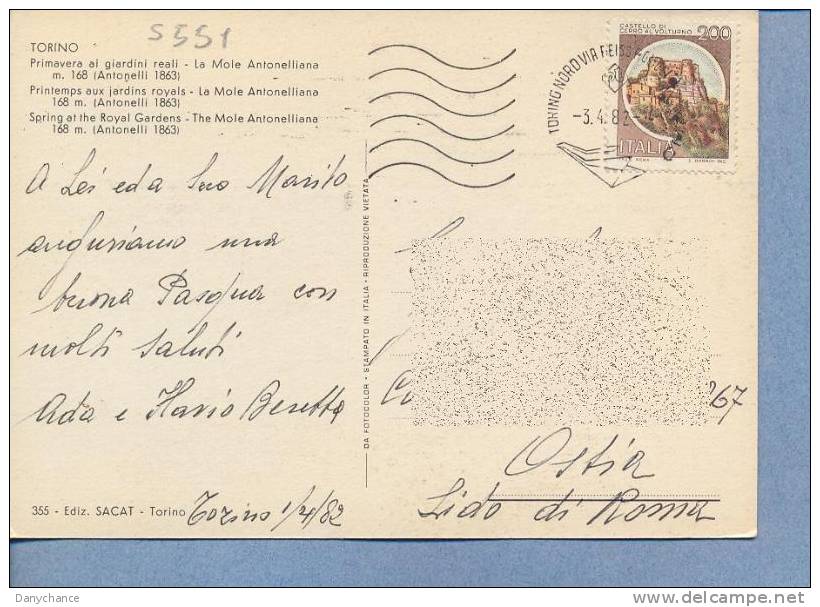 S 551
TORINO
Primavera ai giardini reali - La Mole Antonelliana
m. 168 (Antonelli 1863)
Printemps aux jardins royals - La Mole Antonelliana
168 m. (Antonelli 1863)
Spring at the Royal Gardens - The Mole Antonelliana
168 m. (Antonelli 1863)
A Lei ed a Suo Marito
auguriamo una
buona Pasqua con
molti saluti
Ada e Flavio Beretta
355 - Ediz. SACAT - Torino
Torino 1/4/82
DA FOTOCOLOR - STAMPATO IN ITALIA - RIPRODUZIONE VIETATA
TORINO NORD VIA REISS
-3.4.82
CASTELLO DI
CERRO AL VOLTURNO
200
ITALIA
ROMA
67
Ostia
Lido di Roma
Danychance
www.delcampe.net